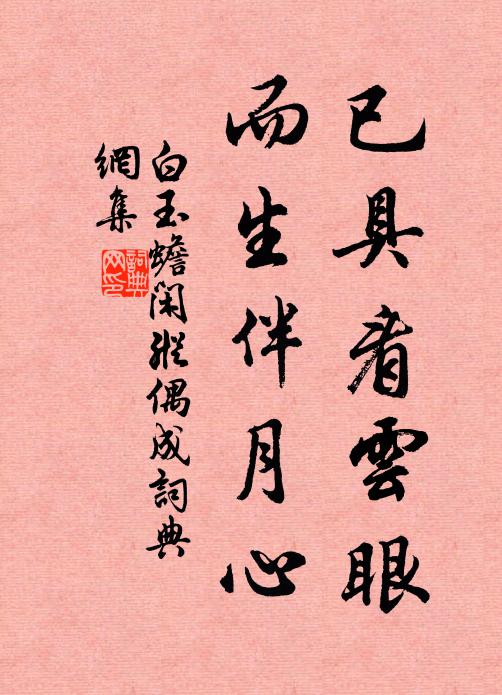 已具看雲眼
而生伴月心
白玉蟾閑縱偶成詞典
網集
詞典網印